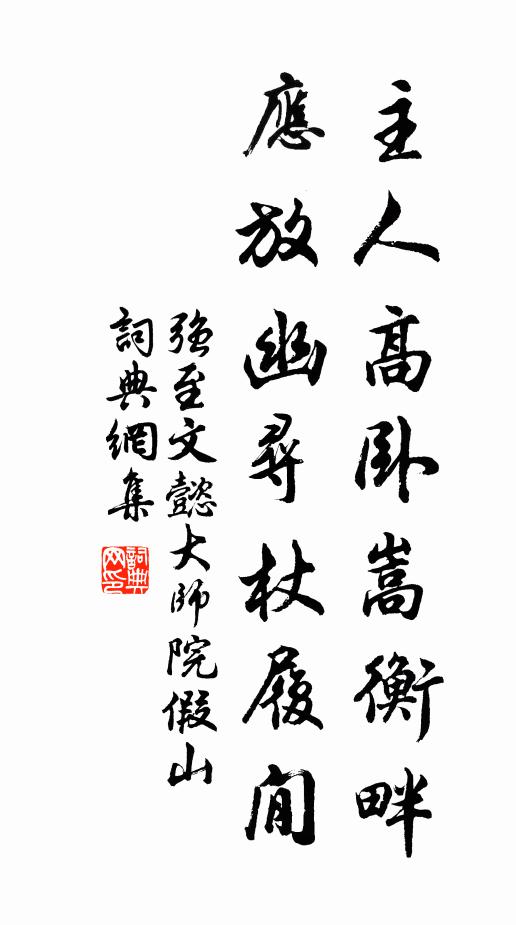 主人高卧嵩衡畔
應放幽尋杖履閒
強至文懿大師院假山
詞典網集
詞典网印